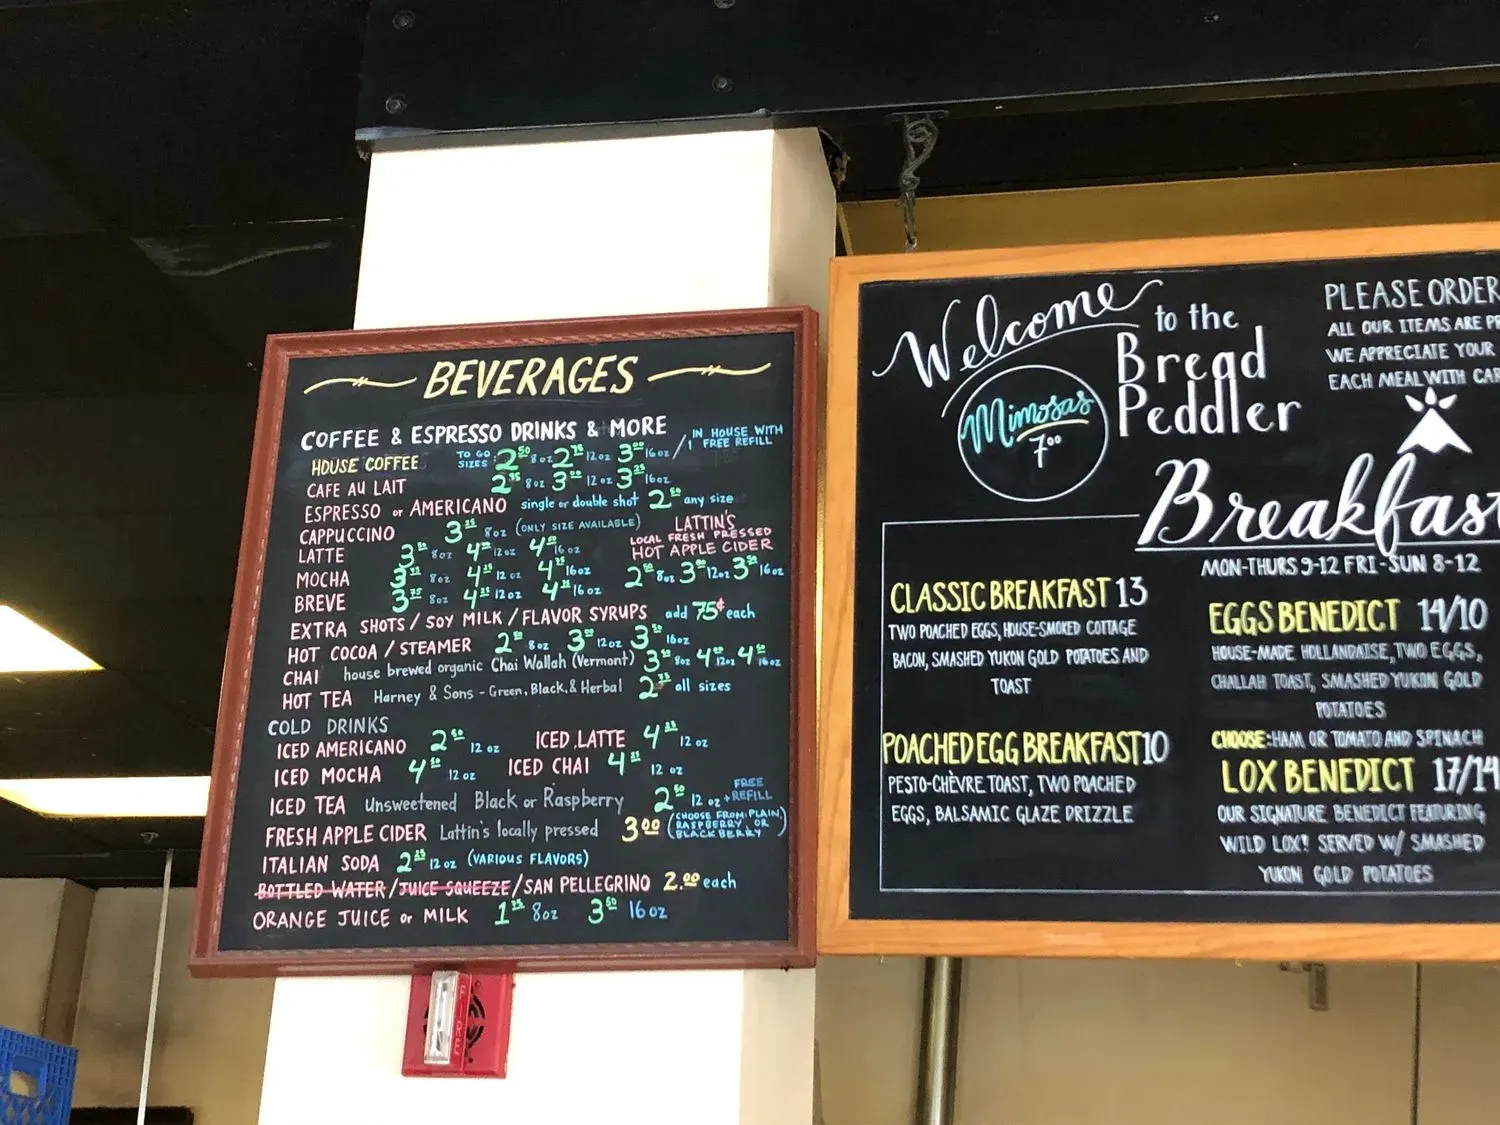 BEVERAGES
COFFEE & ESPRESSO DRINKS & MORE
HOUSE COFFEE TO GO SIZES: 2.50 8oz 2.75 12oz 3.00 16oz / IN HOUSE WITH 1 FREE REFILL
CAFE AU LAIT 2.75 8oz 3.00 12oz 3.25 16oz
ESPRESSO or AMERICANO single or double shot 2.50 any size
CAPPUCCINO 3.25 8oz (ONLY SIZE AVAILABLE)
LATTE 8oz 12oz 16oz
LATTIN'S
LOCAL FRESH PRESSED
HOT APPLE CIDER
2.50 8oz 3.00 12oz 3.50 16oz
MOCHA 3.75 8oz 4.25 12oz 4.75 16oz
BREVE 3.75 8oz 4.25 12oz 4.75 16oz
EXTRA SHOTS / SOY MILK / FLAVOR SYRUPS add 75¢ each
HOT COCOA / STEAMER 8oz 3.00 12oz 3.50 16oz
CHAI house brewed organic Chai Wallah (Vermont) 3.50 8oz 4.00 12oz 4.50 16oz
HOT TEA Harney & Sons - Green, Black, & Herbal 2.75 all sizes
COLD DRINKS
ICED AMERICANO 2.50 12 oz ICED LATTE 4.25 12 oz
ICED MOCHA 4.50 12 oz ICED CHAI 4.25 12 oz
ICED TEA Unsweetened Black or Raspberry 2.50 12 oz + FREE REFILL
FRESH APPLE CIDER Lattin's locally pressed 3.00 (CHOOSE FROM: PLAIN, RASPBERRY, OR BLACKBERRY)
ITALIAN SODA 2.25 12 oz (VARIOUS FLAVORS)
BOTTLED WATER / JUICE SQUEEZE / SAN PELLEGRINO 2.00 each
ORANGE JUICE or MILK 1.75 8oz 3.50 16oz
Welcome to the
Bread
Peddler
Mimosas
7.00
PLEASE ORDER
ALL OUR ITEMS ARE
WE APPRECIATE YOUR
EACH MEAL WITH
Breakfast
MON-THURS 9-12 FRI-SUN 8-12
CLASSIC BREAKFAST 13
TWO POACHED EGGS, HOUSE-SMOKED COTTAGE
BACON, SMASHED YUKON GOLD POTATOES AND
TOAST
POACHED EGG BREAKFAST 10
PESTO-CHÈVRE TOAST, TWO POACHED
EGGS, BALSAMIC GLAZE DRIZZLE
EGGS BENEDICT 14/10
HOUSE-MADE HOLLANDAISE, TWO EGGS,
CHALLAH TOAST, SMASHED YUKON GOLD
POTATOES
CHOOSE: HAM OR TOMATO AND SPINACH
LOX BENEDICT 17/14
OUR SIGNATURE BENEDICT FEATURING
WILD LOX! SERVED W/ SMASHED
YUKON GOLD POTATOES
FIRE